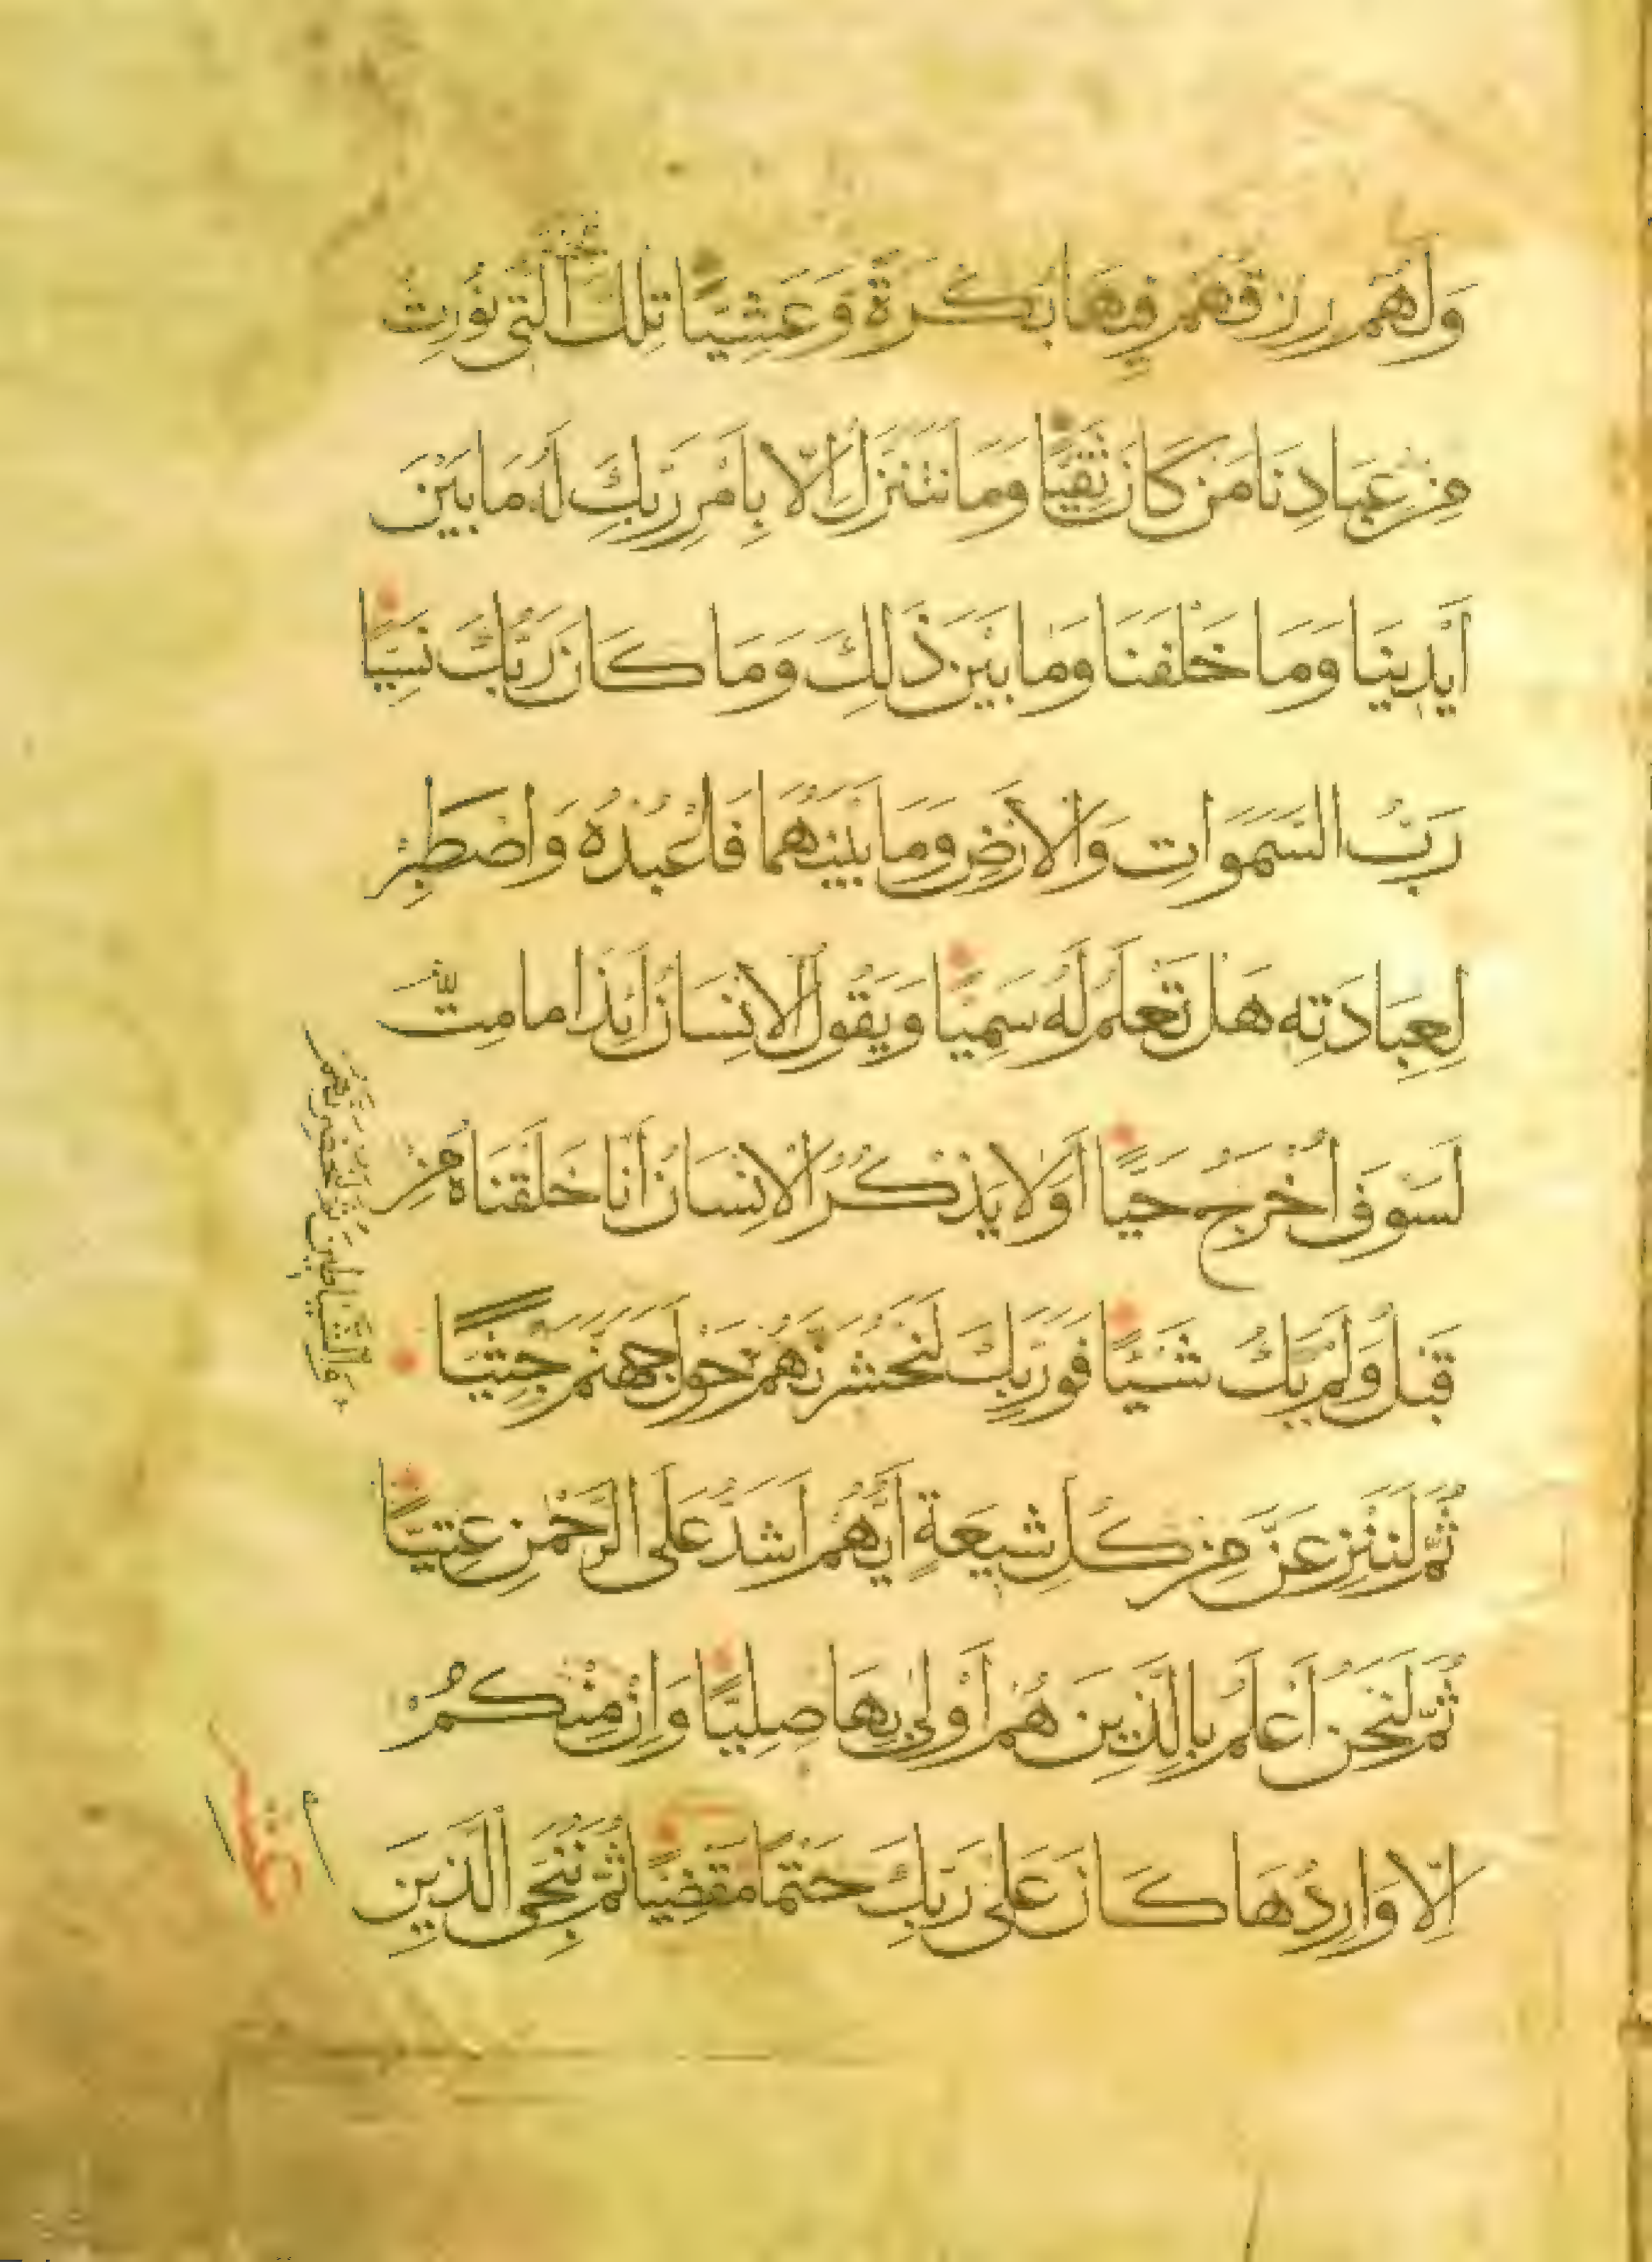 وَلَهُمْ رِزْقُهُمْ فِيهَا بُكْرَةً وَعَشِيًّا تِلْكَ الَّتِي نُورِثُ
الْجَنَّةُ
مِنْ عِبَادِنَا مَنْ كَانَ تَقِيًّا وَمَا نَتَنَزَّلُ اِلَّا بِاَمْرِ رَبِّكَ لَهُ مَا بَيْنَ
اَيْدِينَا وَمَا خَلْفَنَا وَمَا بَيْنَ ذٰلِكَ وَمَا كَانَ رَبُّكَ نَسِيًّا
رَبُّ السَّمَوَاتِ وَالْاَرْضِ وَمَا بَيْنَهُمَا فَاعْبُدْهُ وَاصْطَبِرْ
لِعِبَادَتِهِ هَلْ تَعْلَمُ لَهُ سَمِيًّا وَيَقُولُ الْاِنْسَانُ اَئِذَا مَا مِتُّ
لَسَوْفَ اُخْرَجُ حَيًّا اَوَلَا يَذْكُرُ الْاِنْسَانُ اَنَّا خَلَقْنَاهُ مِنْ
قَبْلُ وَلَمْ يَكُ شَيْئًا فَوَرَبِّكَ لَنَحْشُرَنَّهُمْ حَوْلَ جَهَنَّمَ جِثِيًّا
وَالشَّيَاطِينَ ثُمَّ لَنُحْضِرَنَّهُمْ
ثُمَّ لَنَنْزِعَنَّ مِنْ كُلِّ شِيعَةٍ اَيُّهُمْ اَشَدُّ عَلَى الرَّحْمٰنِ عِتِيًّا
ثُمَّ لَنَحْنُ اَعْلَمُ بِالَّذِينَ هُمْ اَوْلٰى بِهَا صِلِيًّا وَاِنْ مِنْكُمْ
اِلَّا وَارِدُهَا كَانَ عَلٰى رَبِّكَ حَتْمًا مَقْضِيًّا ثُمَّ نُنَجِّي الَّذِينَ